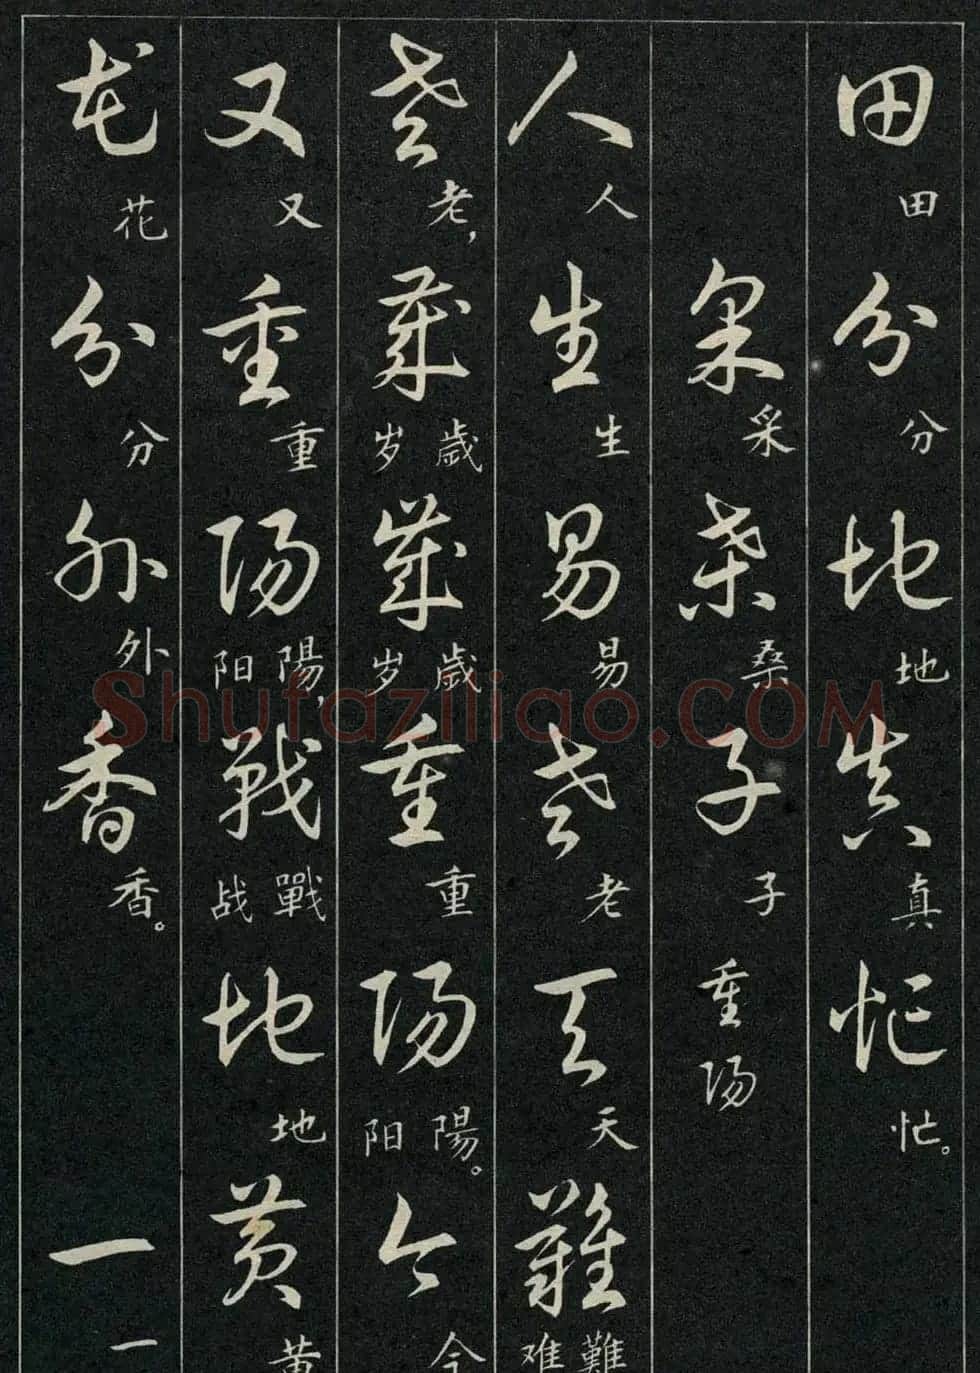 田分地真忙
田分地真忙。
采桑子 重陽
采桑子
人生易老天難
人生易老天難难
老歲歲重陽今
老,歲岁歲岁重陽。阳今
又重陽戰地黄
又重陽,阳戰战地黄
花分外香一
花分外香。一
Shufaziliao.COM